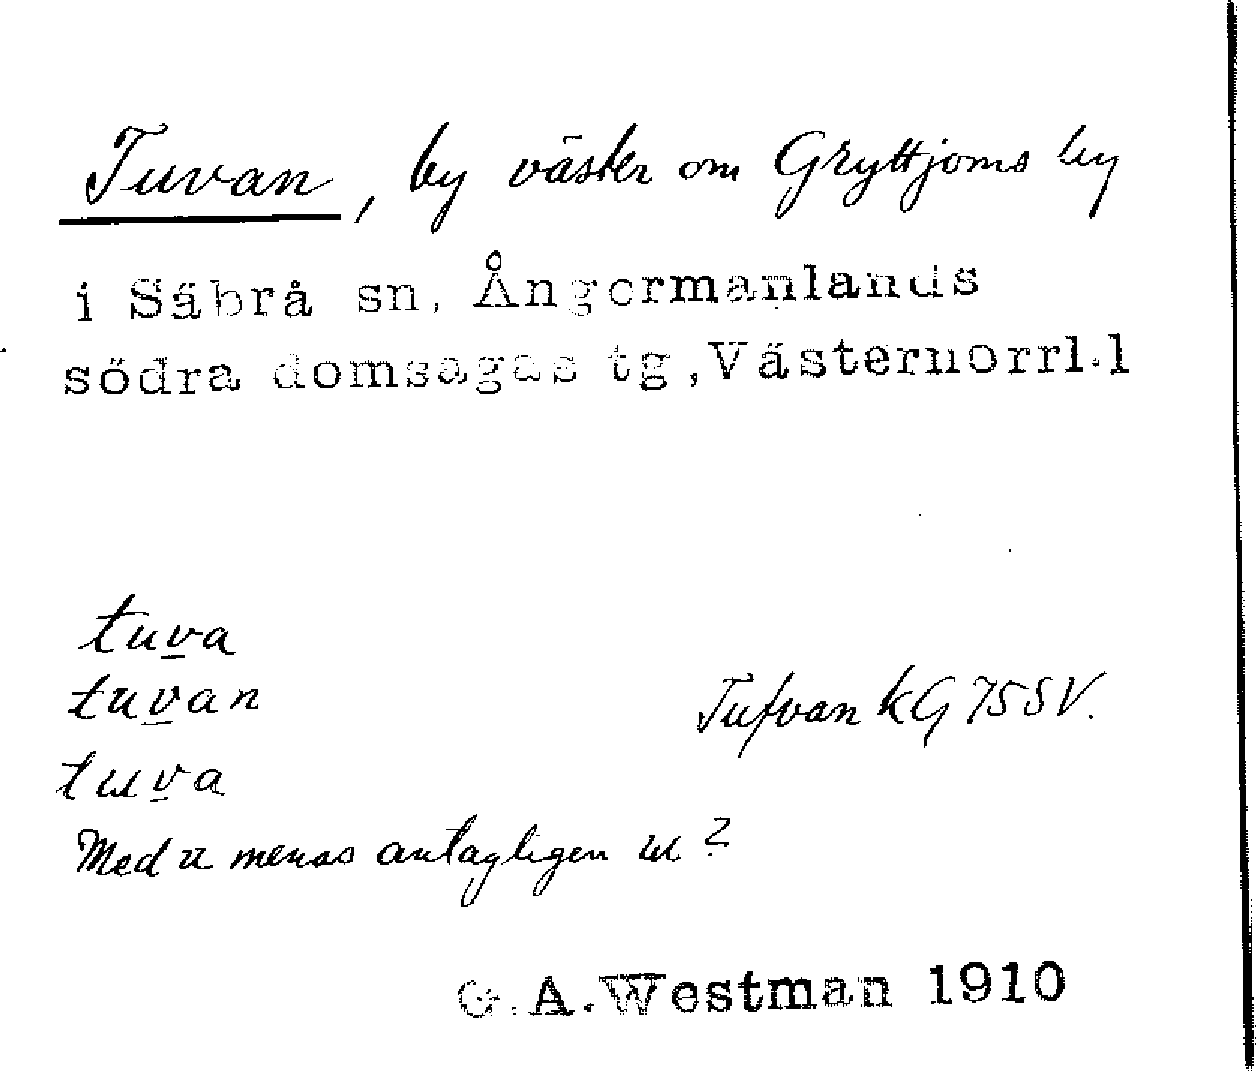 Tuvan, by väster om Gryttjoms by
i Säbrå sn, Ångermanlands
södra domsagas tg, Västernorrl.l
tuva
tuvan
tuva
Tufvan kG 75 SV.
Med u menas antagligen ɯ ?
G.A.Westman 1910